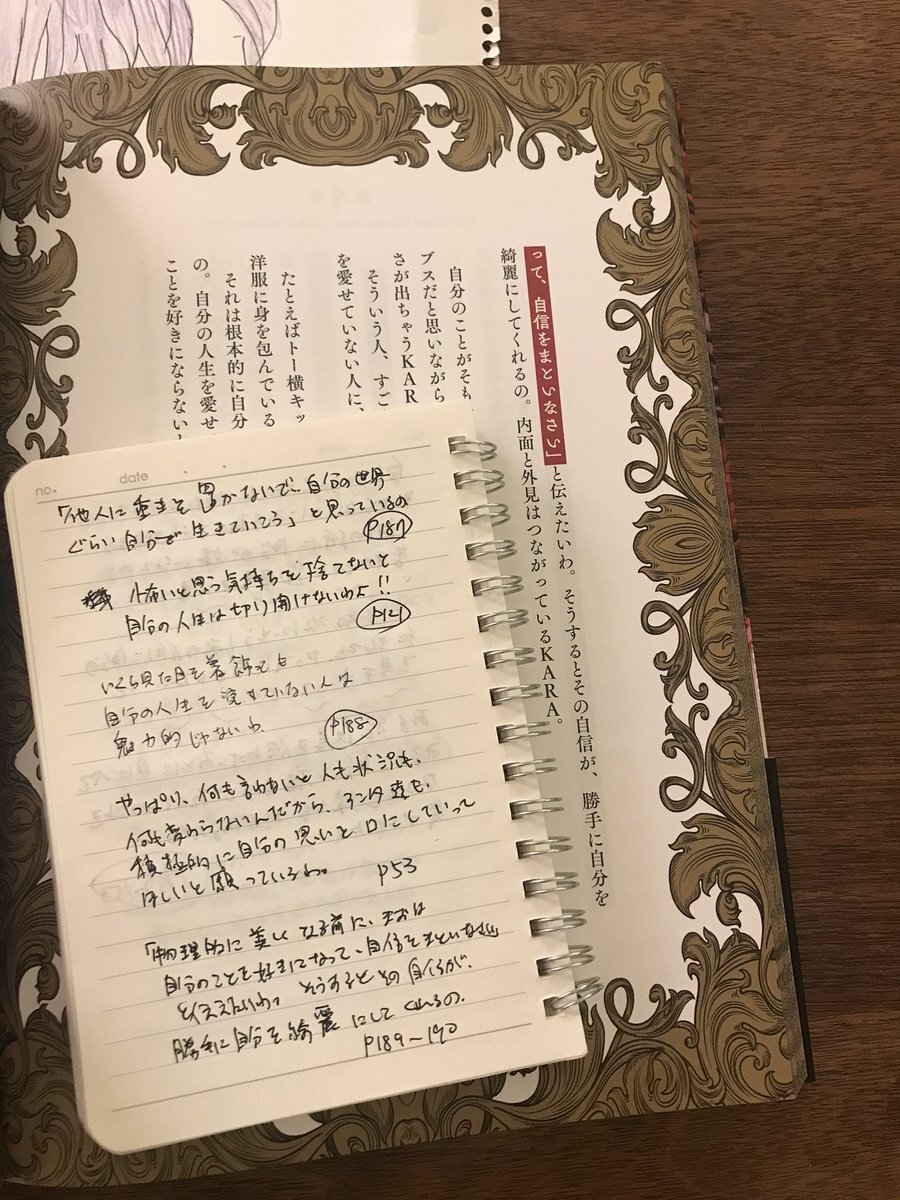 って、自信をまといなさい」と伝えたいわ。そうするとその自信が、勝手に自分を
綺麗にしてくれるの。内面と外見はつながっているKARA。
自分のことがそも
ブスだと思いながら
さが出ちゃうKAR
そういう人、すご
を愛せていない人に、
たとえばトー横キッ
洋服に身を包んでいる
それは根本的に自分
の。自分の人生を愛せ
ことを好きにならない
no. date
「他人に重きを置かないで、自分の世界
ぐらい自分で生きていこう」と思っているの
P187
怖いと思う気持ちを捨てないと
自分の人生は切り開けないわよ!!
P121
いくら見た目を着飾っても
自分の人生を愛せていない人は
魅力的じゃないわ。
P188
やっぱり、何も言わないと人も状況も、
何も変わらないんだから、アンタ達も、
積極的に自分の思いを口にしていって
ほしいと願っているわ。 P53
「物理的に美しくなる前に、まずは
自分のことを好きになって、自信をまといなさい」
と伝えたいわ。そうするとその自信が、
勝手に自分を綺麗にしてくれるの。
P189〜190